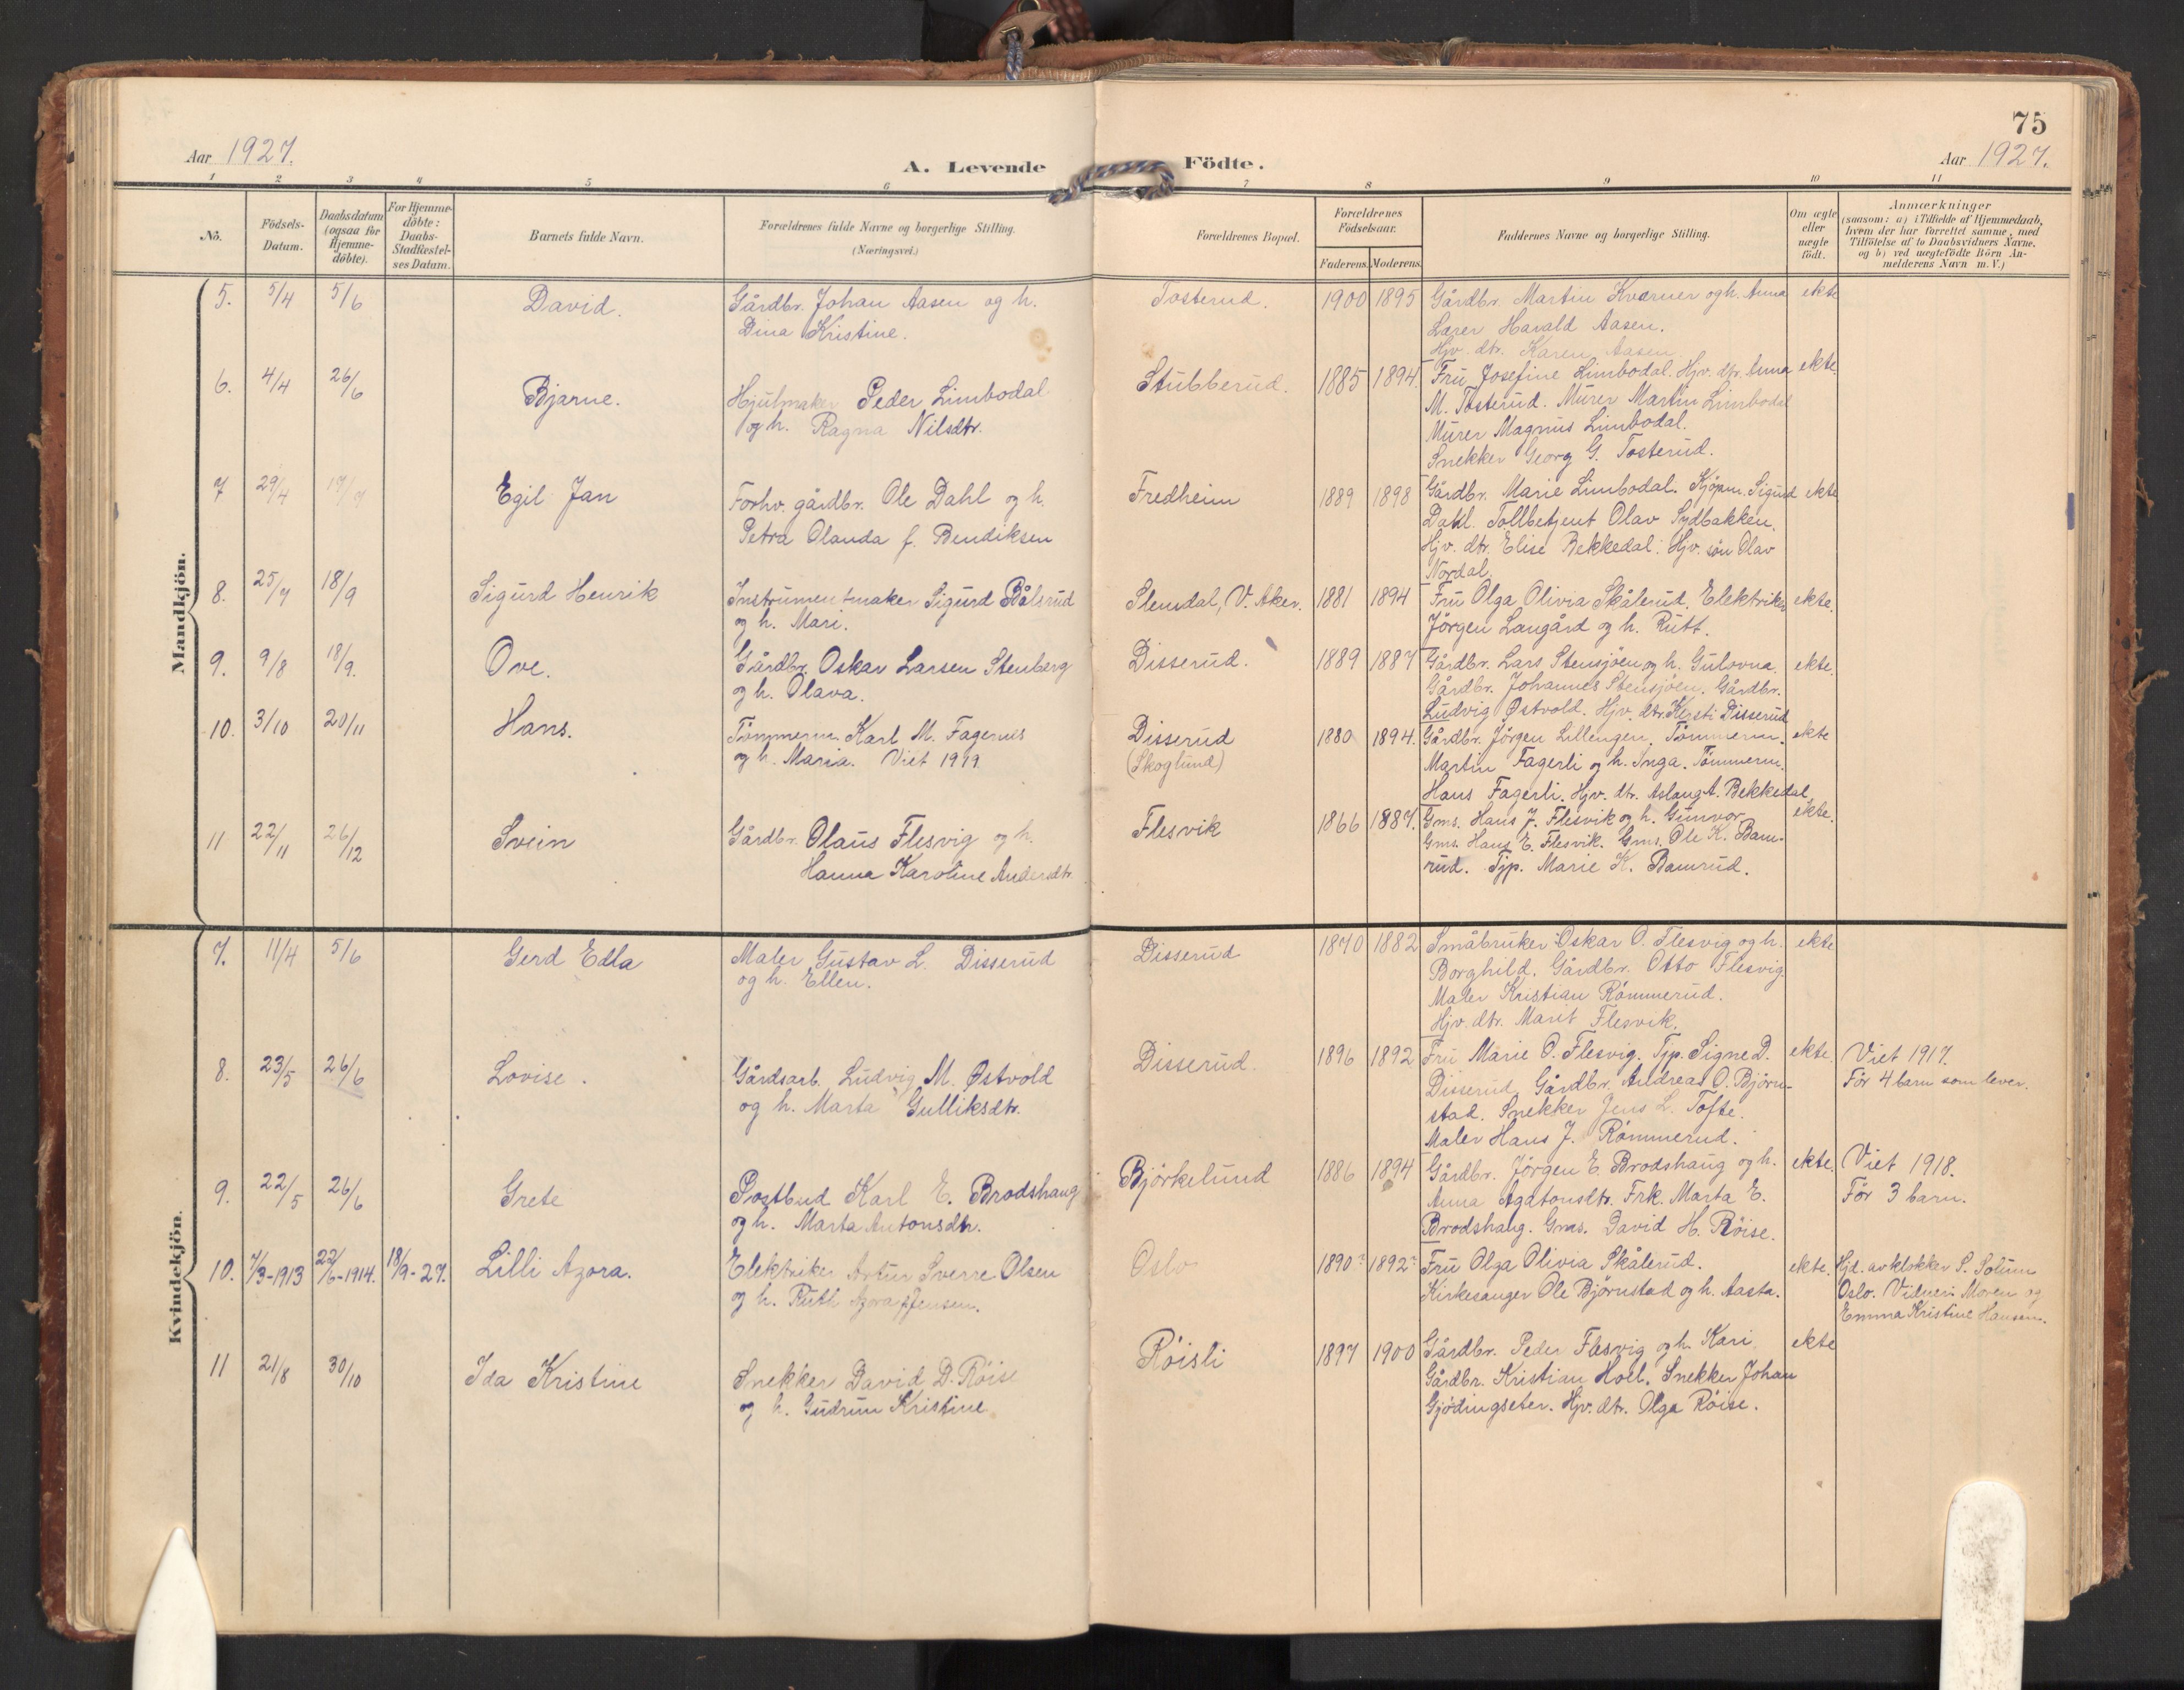 75
Aar 1927. A. Levende Födte. Aar 1927.
1 2 3 4 5 6 7 8 9 10 11
No. Födsels-Datum. Daabsdatum (ogsaa for Hjemme-döbte). For Hjemme-döbte: Daabs-Stadfæstel-ses Datum. Barnets fulde Navn. Forældrenes fulde Navne og borgerlige Stilling. (Næringsvei.) Forældrenes Bopæl. Forældrenes Födselsaar. Faderens. Moderens. Faddernes Navne og borgerlige Stilling. Om ægte eller uægte födt. Anmærkninger (saasom: a) i Tilfælde af Hjemmedaab, hvem der har forrettet samme, med Tilföielse af to Daabsvidners Navne, og b) ved uægtefödte Börn An-melderens Navn m. V.)
Mandkjön.
5. 5/4 5/6 David. Gårdbr. Johan Aasen og h. Tosterud. 1900 1895 Gårdbr. Martin Kværner og h. Anna ekte
Dina Kristine. Lærer Harald Aasen.
Hjv. dtr. Karen Aasen
6. 4/4 26/6 Bjarne. Hjulmaker Peder Limbodal Stubberud. 1885 1894. Fru Josefine Limbodal. Hjv. dtr. Anna ekte.
og h. Ragna Nilsdtr. M. Tosterud. Murer Martin Limbodal
Murer Magnus Limbodal.
Snekker Georg G. Tosterud.
7 29/4 17/7 Egil Jan Forhv. gårdbr. Ole Dahl og h. Fredheim 1889 1898 Gårdbr. Marie Limbodal. Kjöpm. Sigurd ekte
Petra Olanda f. Bendiksen Dahl. Tollbetjent Olav Sydbakken.
Hjv. dtr. Elise Bekkedal. Hjv. sön Olav
Nordal.
8. 25/7 18/9 Sigurd Henrik Instrumentmaker Sigurd Bålsrud Slemdal, V. Aker. 1881 1894 Fru Olga Olivia Skålerud. Elektriker ekte.
og h. Mari. Jörgen Langård og h. Rutt.
9. 9/8 18/9. Ove. Gårdbr. Oskar Larsen Stenberg Disserud. 1889 1887 Gårdbr. Lars Stensjöen og h. Gulovna ekte.
og h. Olava. Gårdbr. Johannes Stensjöen. Gårdbr.
Ludvig Østvold. Hjv. dtr. Kersti Disserud
10. 3/10 20/11 Hans. Tömmerm. Karl M. Fagernes Disserud 1880 1894. Gårdbr. Jörgen Lillengen. Tömmerm. ekte
og h. Maria. Viet 1919. (Skoglund) Martin Fagerli og h. Inga. Tömmerm.
Hans Fagerli. Hjv. dtr. Aslaug A. Bekkedal.
11 22/11 26/12 Svein Gårdbr. Olaus Flesvig og h. Flesvik 1866 1887. Gms. Hans J. Flesvik og h. Gunvor ekte.
Hanna Karoline Andersdtr. Gms. Hans E. Flesvik. Gms. Ole K. Bam-
rud. Tjp. Marie K. Bamrud.
Kvindekjön.
7. 11/4 5/6 Gerd Edla Maler Gustav L. Disserud Disserud 1870 1882 Småbruker Oskar O. Flesvig og h. ekte
og h. Ellen. Borghild. Gårdbr. Otto Flesvig.
Maler Kristian Römmerud.
Hjv. dtr. Marit Flesvik.
8. 23/5 26/6 Lovise. Gårdsarb. Ludvig M. Østvold Disserud. 1896 1892 Fru Marie O. Flesvig. Tjp. Signe D. ekte. Viet 1917.
og h. Marta Gulliksdtr. Disserud Gårdbr. Andreas O. Björn- För 4 barn som lever.
stad. Snekker Jens L. Tofte.
Maler Hans J. Römmerud.
9. 22/5 26/6 Grete Postbud Karl E. Brodshaug Björkelund 1886 1894 Gårdbr. Jörgen E. Brodshaug og h. ekte. Viet 1918.
og h. Marta Antonsdtr. Anna Agatonsdtr. Frk. Marta E. För 3 barn.
Brodshaug. Gms. David H. Röise.
10. 7/3-1913 22/6-1914. 18/9-27. Lilli Azora. Elektriker Artur Sverre Olsen Oslo 1890? 1892? Fru Olga Olivia Skålerud. ekte. Hjd. av klokker S. Solum
og h. Ruth Azora f. Jensen. Kirkesanger Ole Björnstad og h. Aasta. Oslo. Vidner: Moren og
Emma Kristine Hansen.
11 21/8 30/10 Ida Kristine Snekker David D. Röise Röisli 1897 1900 Gårdbr. Peder Flesvig og h. Kari ekte
og h. Gudrun Kristine Gårdbr. Kristian Hoel. Snekker Johan
Gjödingseter. Hjv. dtr. Olga Röise.